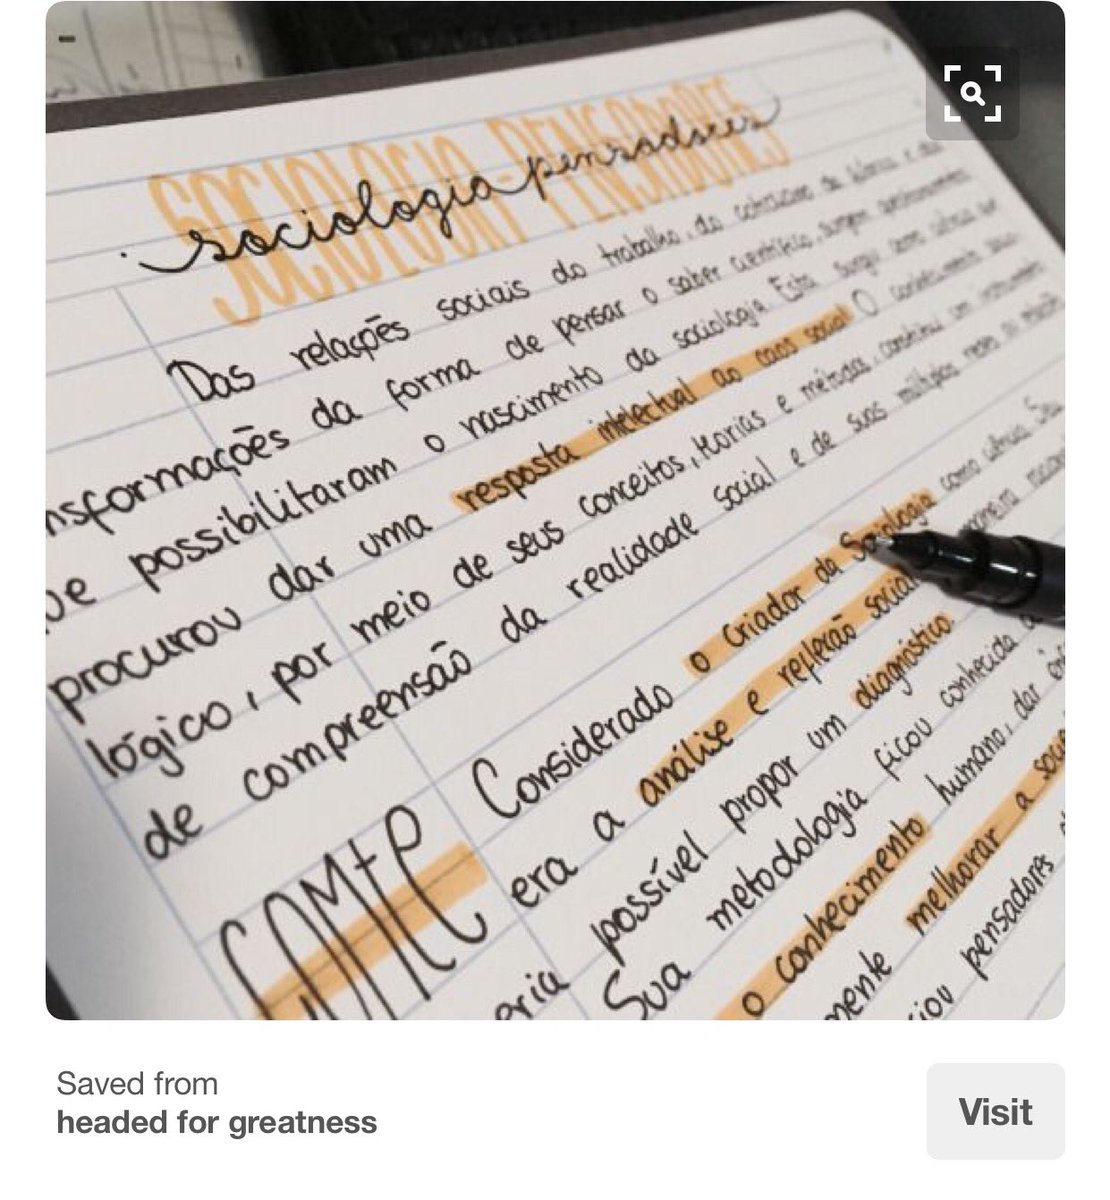 SOCIOLOGIA PENSADORES
sociologia pensadores
Das relações sociais do trabalho, do cotidiano da fábrica e das
nsformações da forma de pensar o saber científico, surgem
ue possibilitaram o nascimento da sociologia. Esta surgiu como ciência que
procurou dar uma resposta intelectual ao caos social. O conhecimento
lógico, por meio de seus conceitos, teorias e métodos, constitui um instrumento
de compreensão da realidade social e de suas múltiplas redes
COMTE
Considerado o criador da Sociologia como ciência. Seu
era a análise e reflexão social
eria possível propor um diagnóstico.
Sua metodologia ficou conhecida
o conhecimento humano, dar
mente melhorar a
ciou pensadores
Saved from
headed for greatness
Visit